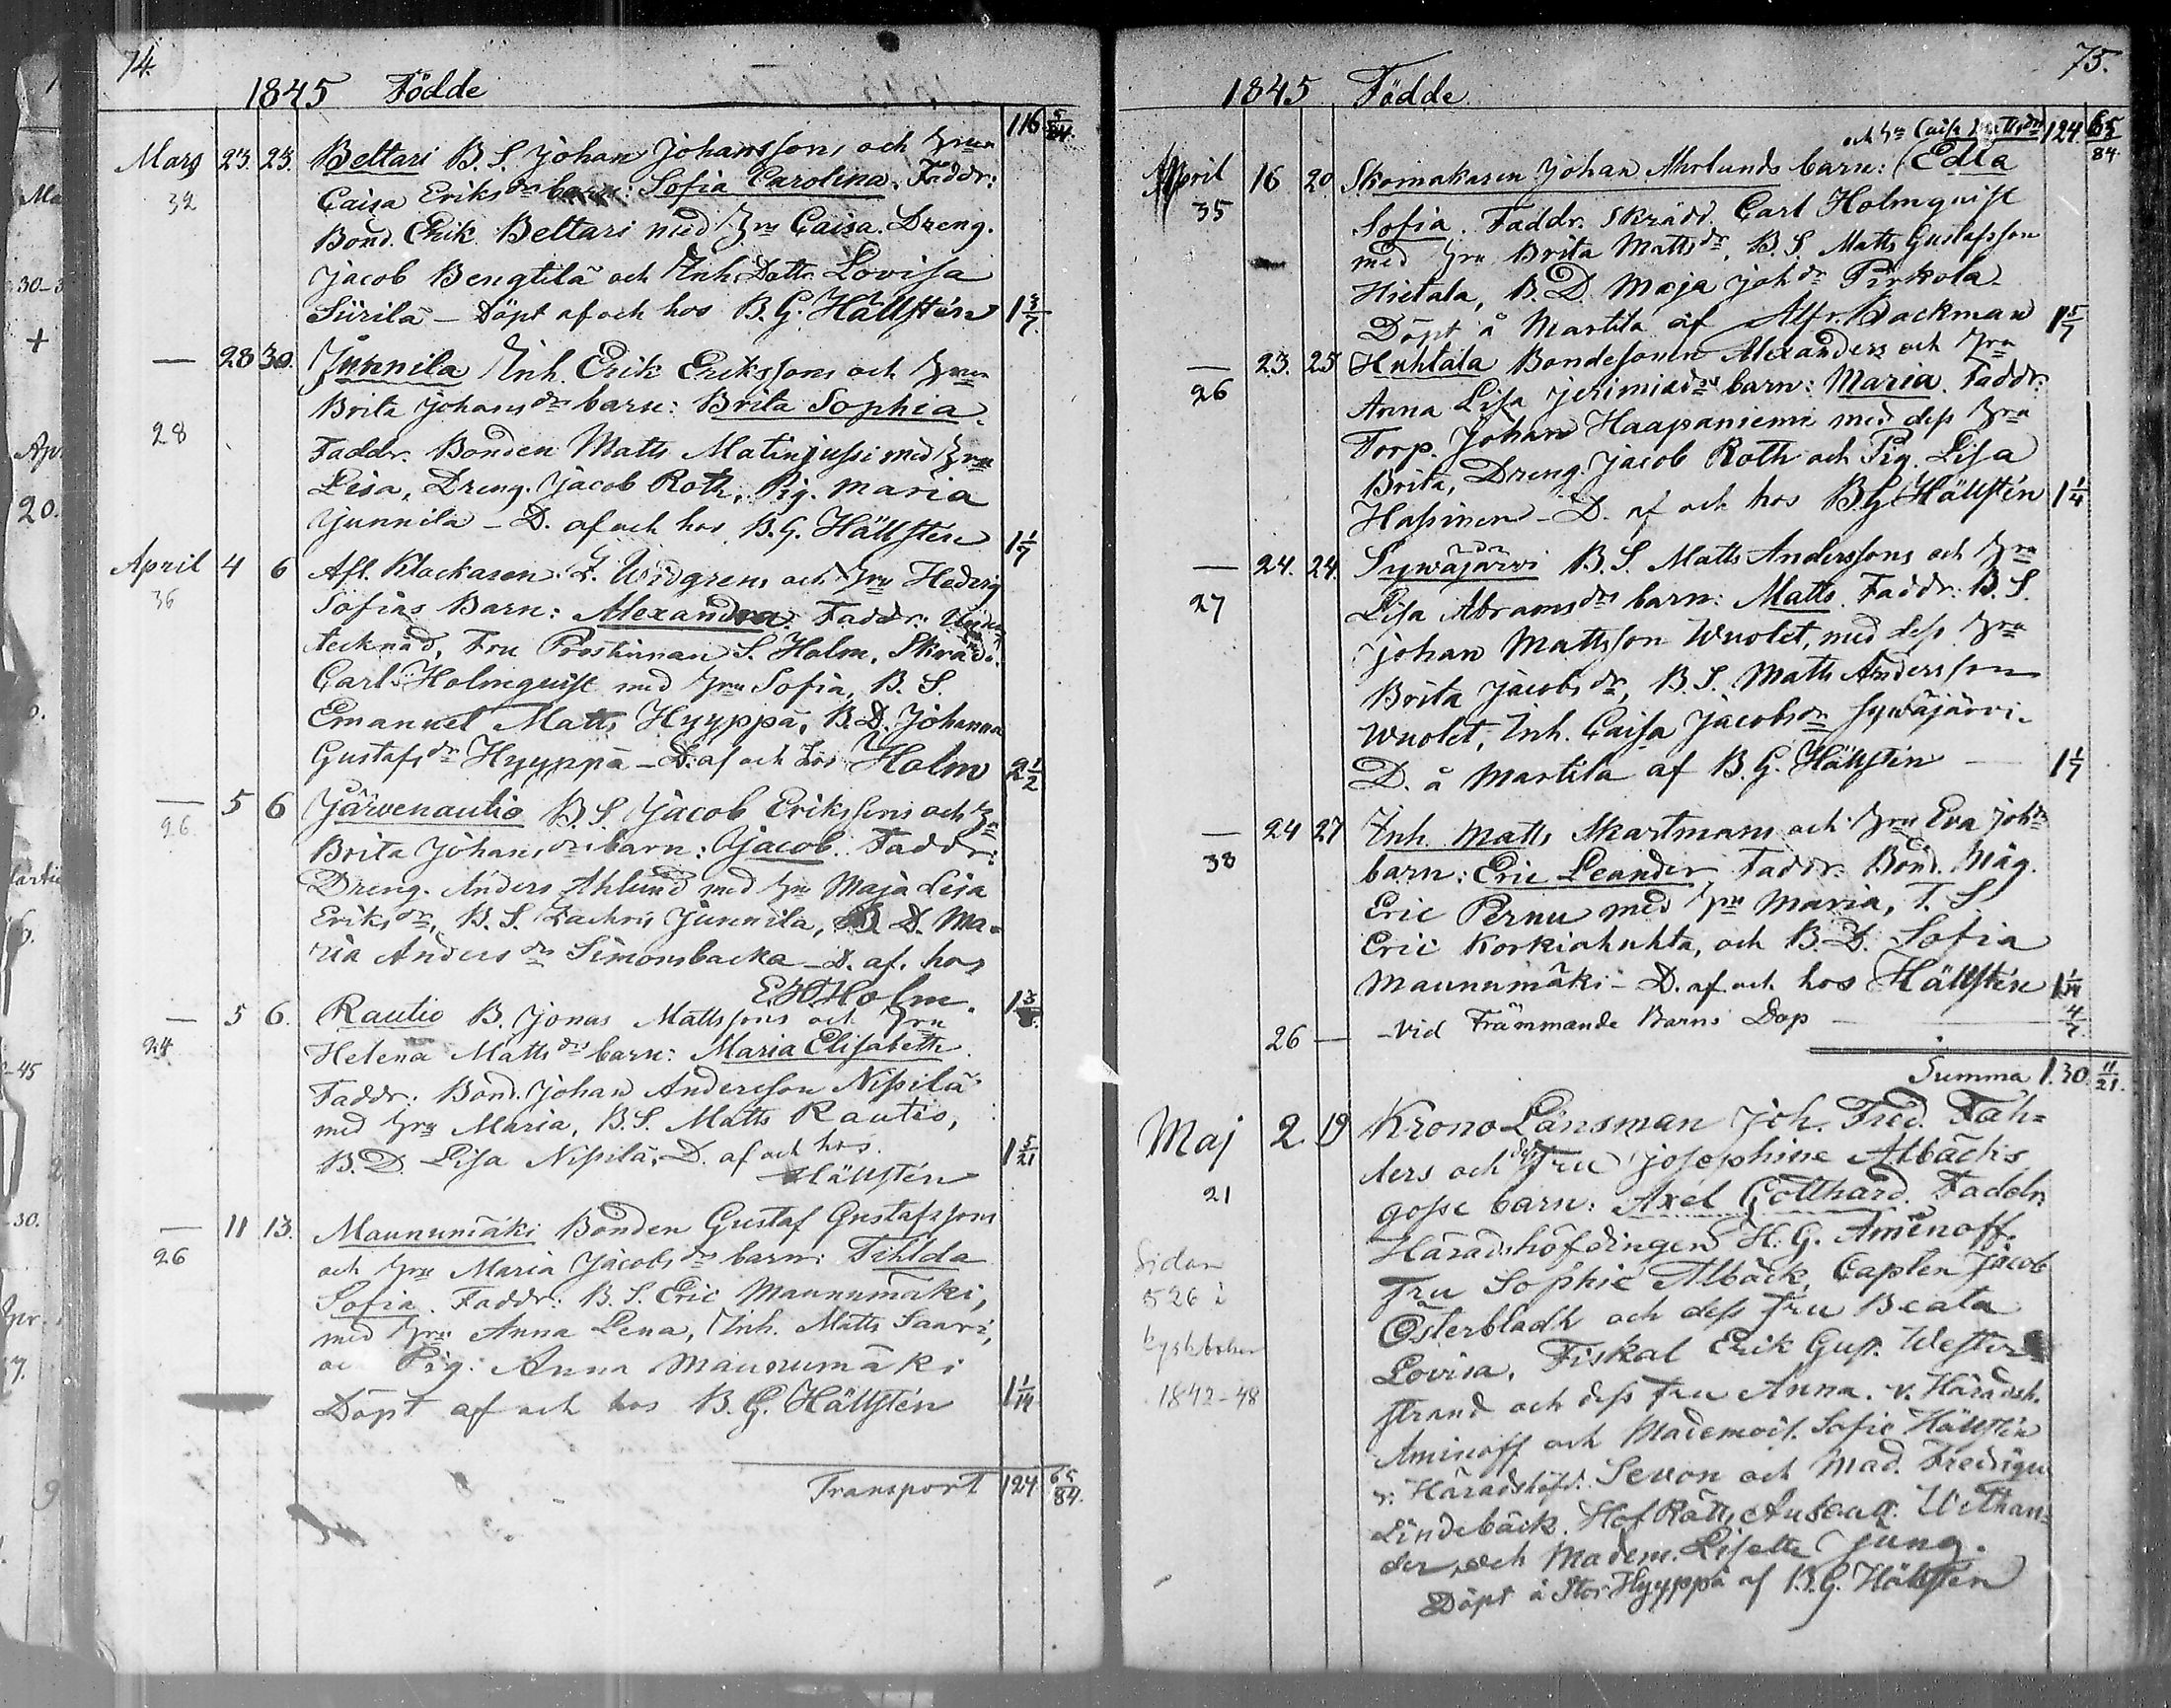 74.
1845 Födde
116 5/84.
Mars 23. 23. Beltari B. S. Johan Johanssons och Hrun
32 Caisa Eriksdrs barn: Sofia Carolina. Faddr:
Bond. Erik Beltari med Hru Caisa. Dreng.
Jacob Bengtilä och Inh. Dottr. Lovisa
Siirilä – Döpt af och hos B. G. Hällstén 1 3/7.
— 28 30. Junnila Inh. Erik Erikssons och Hrun
Brita Johansdrs barn: Brita Sophia.
28 Faddr. Bonden Matts Matinjussi med Hru
Lisa, Dreng. Jacob Roth, Pig. Maria
Junnila – D. af och hos B. G. Hällstén 1 1/7
April 4 6 Afl. Klockaren Z. Widgrens och Hru Hedvig
36 Sofias Barn: Alexandra Faddr: Under
tecknad, Fru Prostinnan S. Holm, Skrädd.
Carl Holmquist med Hru Sofia, B. S.
Emanuel Matts Hyyppä, B. D. Johanna
Gustafsdr Hyyppä – D. af och hos Holm 2 1/2
— 5 6 Järvenautio B. S. Jacob Erikssons och Hru
26. Brita Johansdrs barn: Jacob. Faddr:
Dreng. Anders Ahlund med Hru Maja Lisa
Eriksdr, B. S. Zachris Junnila, B. D. Ma-
ria Andersdr Simonsbacka – D. af. hos
E H Holm. 1 3/
— 5 6. Rautio B. Jonas Mattssons och Hru
24 Helena Mattsdrs barn: Maria Elisabeth.
Faddr: Bond. Johan Andersson Nisßilä
med Hru Maria, B. S. Matts Rautio,
B. D. Lisa Nissilä, D. af och hos. 1 5/21
Hällstén
— 11 13. Maunumäki Bonden Gustaf Gustafssons
26 och Hru Maria Jacobsdrs barn: Tihlda
Sofia. Faddr: B. S. Eric Maunumäki,
med Hru Anna Lena, Inh. Matts Saari,
oc Pig. Anna Maunumäki
Döpt af och hos B. G. Hällstén 1 1/14
Transport 124 65/84.
75.
1845 Födde
och Hru Caisa Mattsdrs 124. 65/84
April 16 20. Skomakaren Johan Åkerlunds barn: Edla
35 Sofia. Faddr. Skrädd. Carl Holmquist
med Hru Brita Mattsdr, B. S. Matts Gustafsson
Hietala, B. D. Maja Johdr Pirkola.
Döpt å Martila af Alfr. Backman 1 5/7
— 23. 25 Huhtala Bondesonen Alexanders och Hru
26 Anna Lisa Jerimiædrs barn: Maria. Faddr:
Torp. Johan Haapaniemi med dess Hru
Brita, Dreng. Jacob Roth och Pig. Lisa
Hassinen – D. af och hos B. G. Hällstén 1 1/4
— 24. 24. Sywäjärvi B. S. Matts Anderssons och Hru
27 Lisa Abramsdrs barn: Matts. Faddr: B. S.
Johan Mattsson Wuolet, med dess Hru
Brita Jacobsdr, B. S. Matts Andersson
Wuolet, Inh. Caisa Jacobsdr Sywäjärvi.
D. å Martila af B. G. Hällstén — 1 1/7
— 24 27 Inh. Matts Skartmans och Hru Eva Johdrs
38 barn: Eric Leander Faddr: Bond. Måg.
Eric Pernu med Hru Maria, T. S.
Eric Korkiahuhta, och B. D. Sofia
Maunumäki – D. af och hos Hällstén 1 1/14
26 — – Vid Främmande Barns Dop — 4/7.
Summa 130. 11/21.
Maj 2. 19 Krono Länsman Joh. Fred. Fah-
lers och dess Fru Josephine Albäcks
21 gosse barn: Axel Gotthard. Faddr.
Häradshöfdingen H. G. Aminoff.
Sidan Fru Sophie Albäck, Caplen Jacob
526 i Österbladh och dess Fru Beata
kyrkboken Lovisa, Fiskal Erik Gust. Wester
1842–48 strand och dess Fru Anna. v. Häradsh.
Aminoff och Mademois. Sofie Hällstén
v. Häradshöfd. Sevon och Mad. Fredrique
Lindebäck. Hof Rätts Auscult. Withan-
der, och Madem. Lisette Jung.
Döpt å Stor Hyyppä af B. G. Hällstén